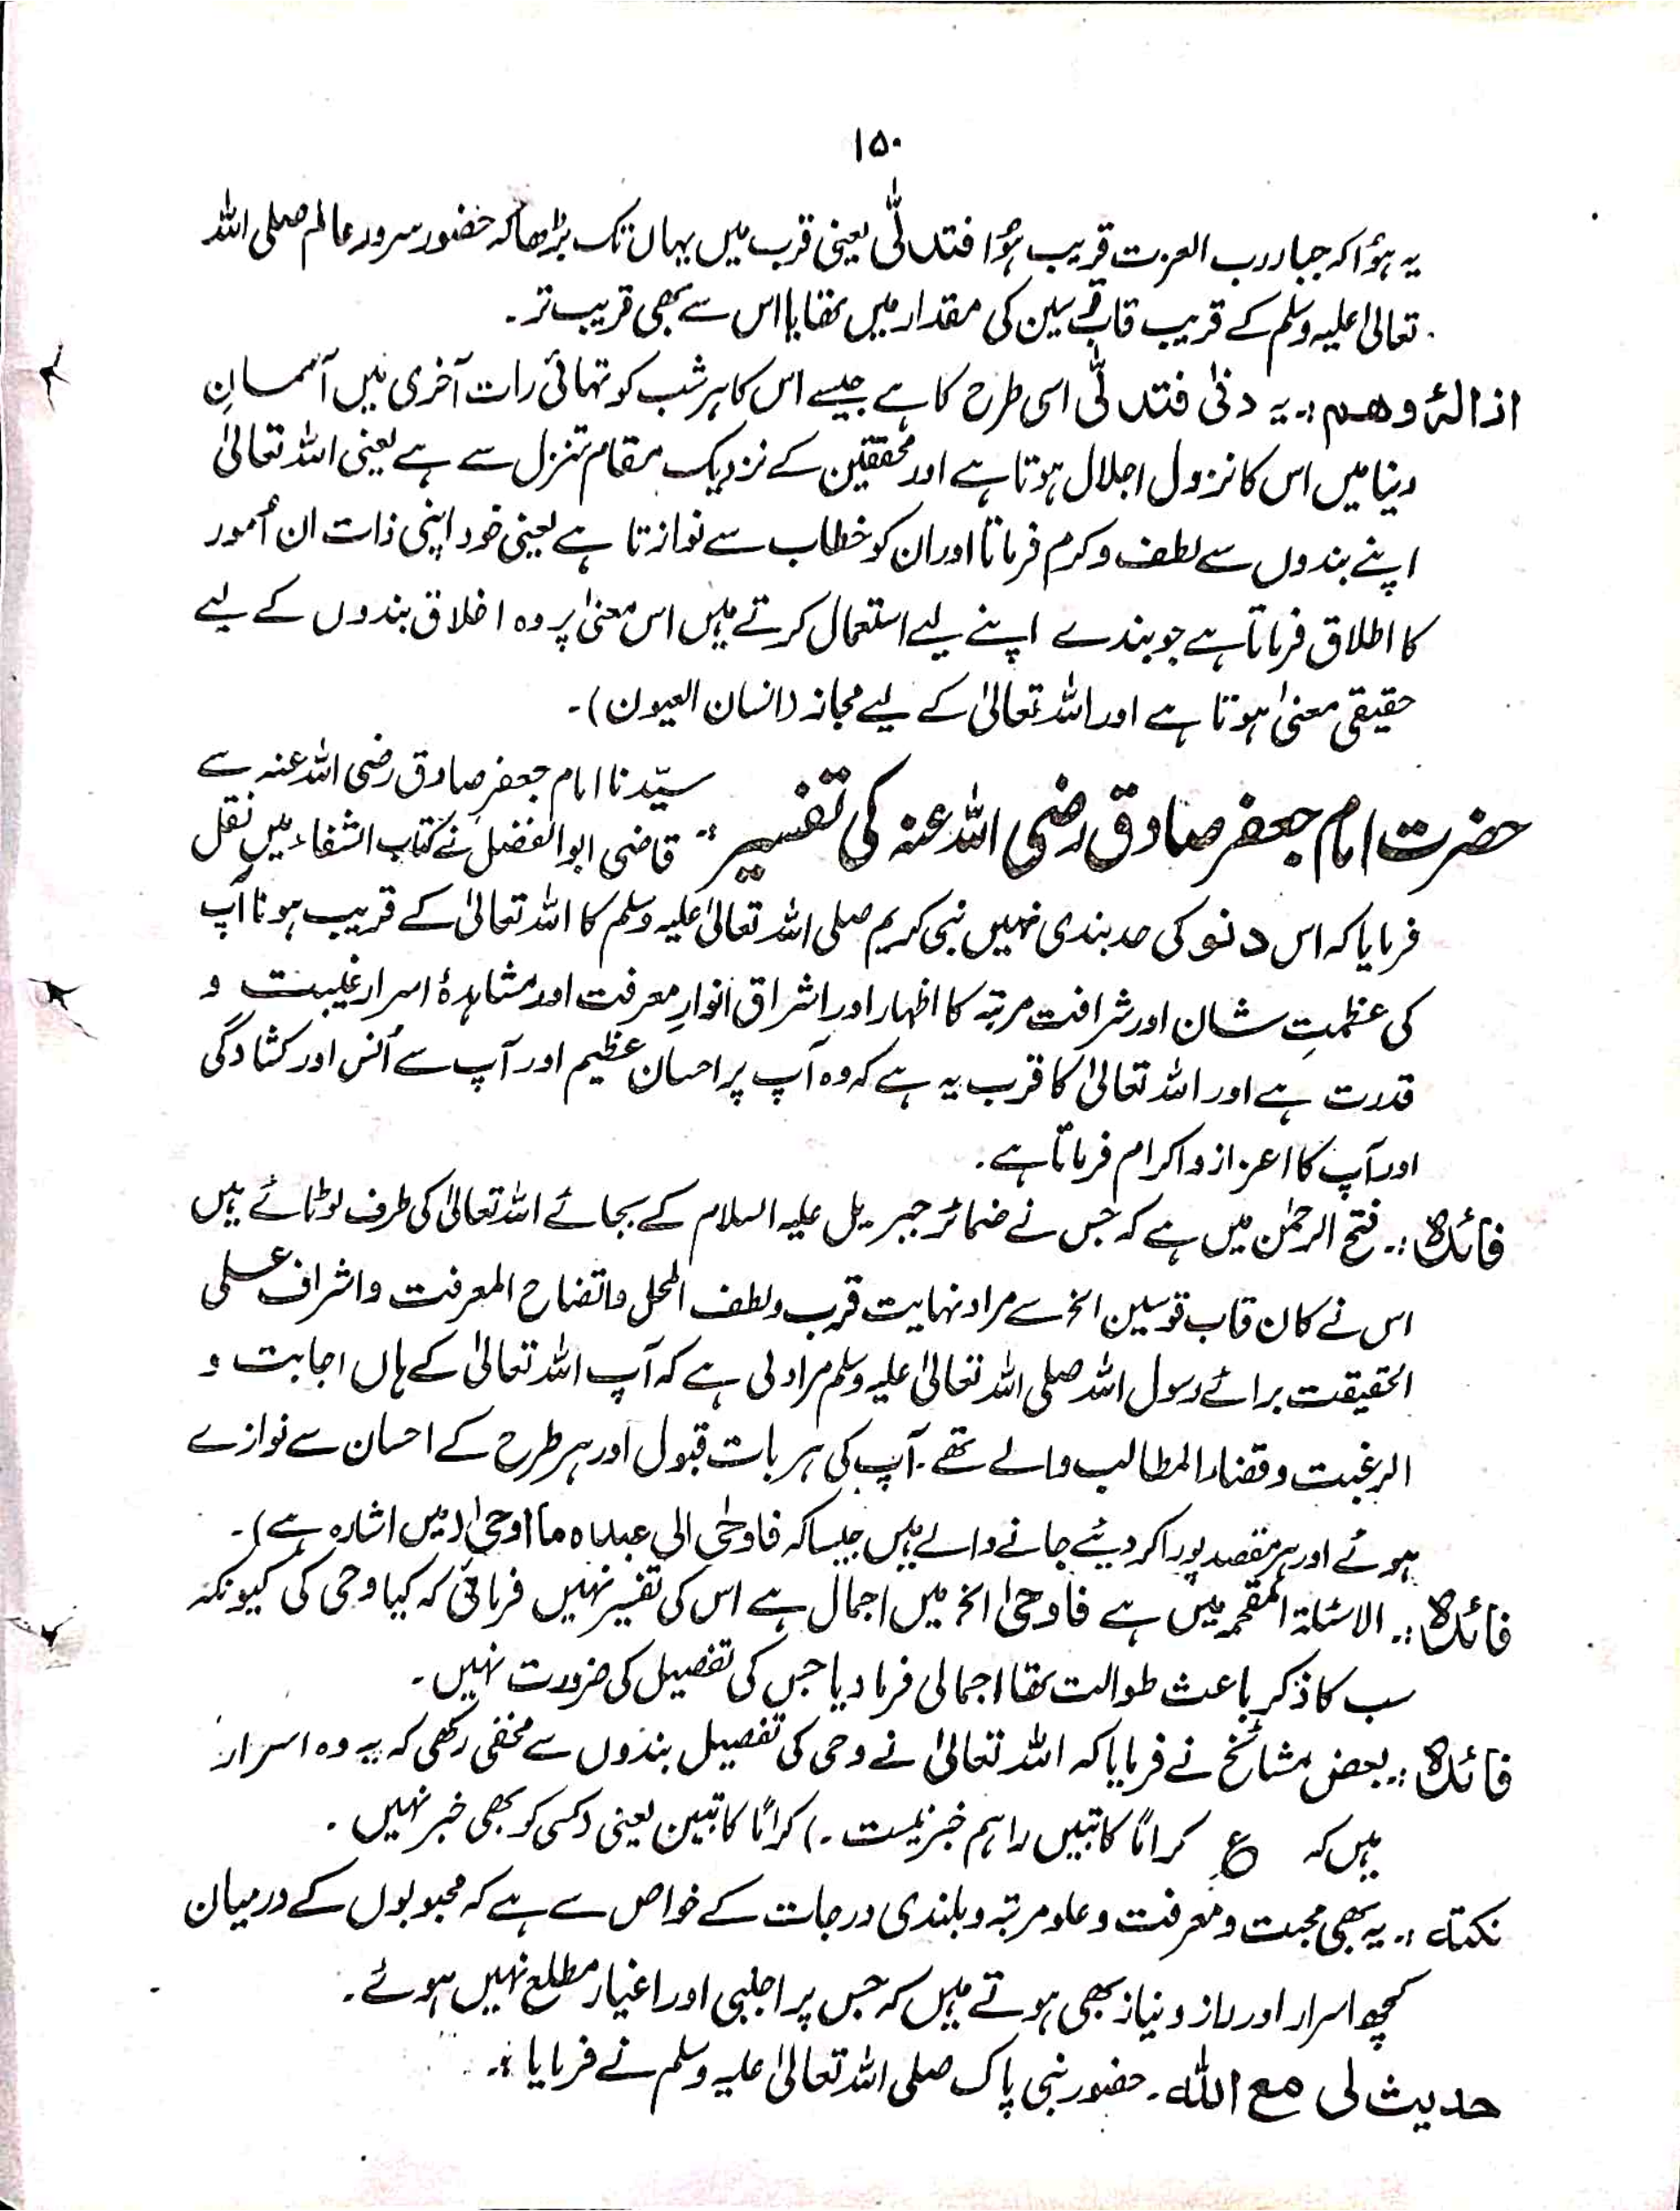 ۱۵۰
یہ ہؤا کہ جبار رب العزت قریب ہؤا فتدلّٰی یعنی قرب میں یہاں تک بڑھا کہ حضور سرور عالم صلی اللہ
تعالیٰ علیہ وسلم کے قریب قاب قوسین کی مقدار میں تھا یا اس سے بھی قریب تر۔
ازالۂ وھم :۔ یہ دنیٰ فتدلّٰی اسی طرح کا ہے جیسے اس کا ہر شب کو تہائی رات آخری میں آسمانِ
دنیا میں اس کا نزول اجلال ہوتا ہے اور محققین کے نزدیک مقام تنزل سے ہے یعنی اللہ تعالیٰ
اپنے بندوں سے لطف و کرم فرماتا اور ان کو خطاب سے نوازتا ہے یعنی خود اپنی ذات ان اُمور
کا اطلاق فرماتا ہے جو بندے اپنے لیے استعمال کرتے ہیں اس معنیٰ پر وہ اخلاق بندوں کے لیے
حقیقی معنیٰ ہوتا ہے اور اللہ تعالیٰ کے لیے مجاز (انسان العیون)۔
حضرت امام جعفر صادق رضی اللہ عنہ کی تفسیر :۔ سیّدنا امام جعفر صادق رضی اللہ عنہ سے
قاضی ابوالفضل نے کتاب الشفاء میں نقل
فرمایا کہ اس دنو کی حد بندی نہیں نبی کریم صلی اللہ تعالیٰ علیہ وسلم کا اللہ تعالیٰ کے قریب ہونا آپ
کی عظمتِ شان اور شرافت مرتبہ کا اظہار اور اشراق انوارِ معرفت اور مشاہدۂ اسرار غیبت و
قدرت ہے اور اللہ تعالیٰ کا قرب یہ ہے کہ وہ آپ پر احسان عظیم اور آپ سے اُنس اور کشادگی
اور آپ کا اعزاز و اکرام فرماتا ہے۔
فائدہ :۔ فتح الرحمٰن میں ہے کہ جس نے ضمائر جبریل علیہ السلام کے بجائے اللہ تعالیٰ کی طرف لوٹائے ہیں
اس نے کان قاب قوسین الخ سے مراد نہایت قرب و لطف المحل و اتضاح المعرفت و اشراف علی
الحقیقت برائے رسول اللہ صلی اللہ تعالیٰ علیہ وسلم مراد لی ہے کہ آپ اللہ تعالیٰ کے ہاں اجابت و
الرغبت و قضاء المطالب والے تھے۔ آپ کی ہر بات قبول اور ہر طرح کے احسان سے نوازے
ہوئے اور ہر مقصد پورا کر دیئے جانے والے ہیں جیسا کہ فاوحیٰ الی عبدہ ما اوحیٰ (میں اشارہ ہے)۔
فائدہ :۔ الاسئلۃ المقحمہ میں ہے فاوحیٰ الخ میں اجمال ہے اس کی تفسیر نہیں فرمائی کہ کیا وحی کی کیونکہ
سب کا ذکر باعث طوالت تھا اجمالی فرما دیا جس کی تفصیل کی ضرورت نہیں۔
فائدہ :۔ بعض مشائخ نے فرمایا کہ اللہ تعالیٰ نے وحی کی تفصیل بندوں سے مخفی رکھی کہ یہ وہ اسرار
ہیں کہ ع کراماً کاتبیں را ہم خبر نیست ۔) کراماً کاتبین یعنی (کسی کو بھی خبر نہیں ۔
نکتہ :۔ یہ بھی محبت و معرفت و علو مرتبہ و بلندی درجات کے خواص سے ہے کہ محبوبوں کے درمیان
کچھ اسرار اور راز و نیاز بھی ہوتے ہیں کہ جس پر اجنبی اور اغیار مطلع نہیں ہوئے۔
حدیث لی مع اللہ ۔ حضور نبی پاک صلی اللہ تعالیٰ علیہ وسلم نے فرمایا :۔